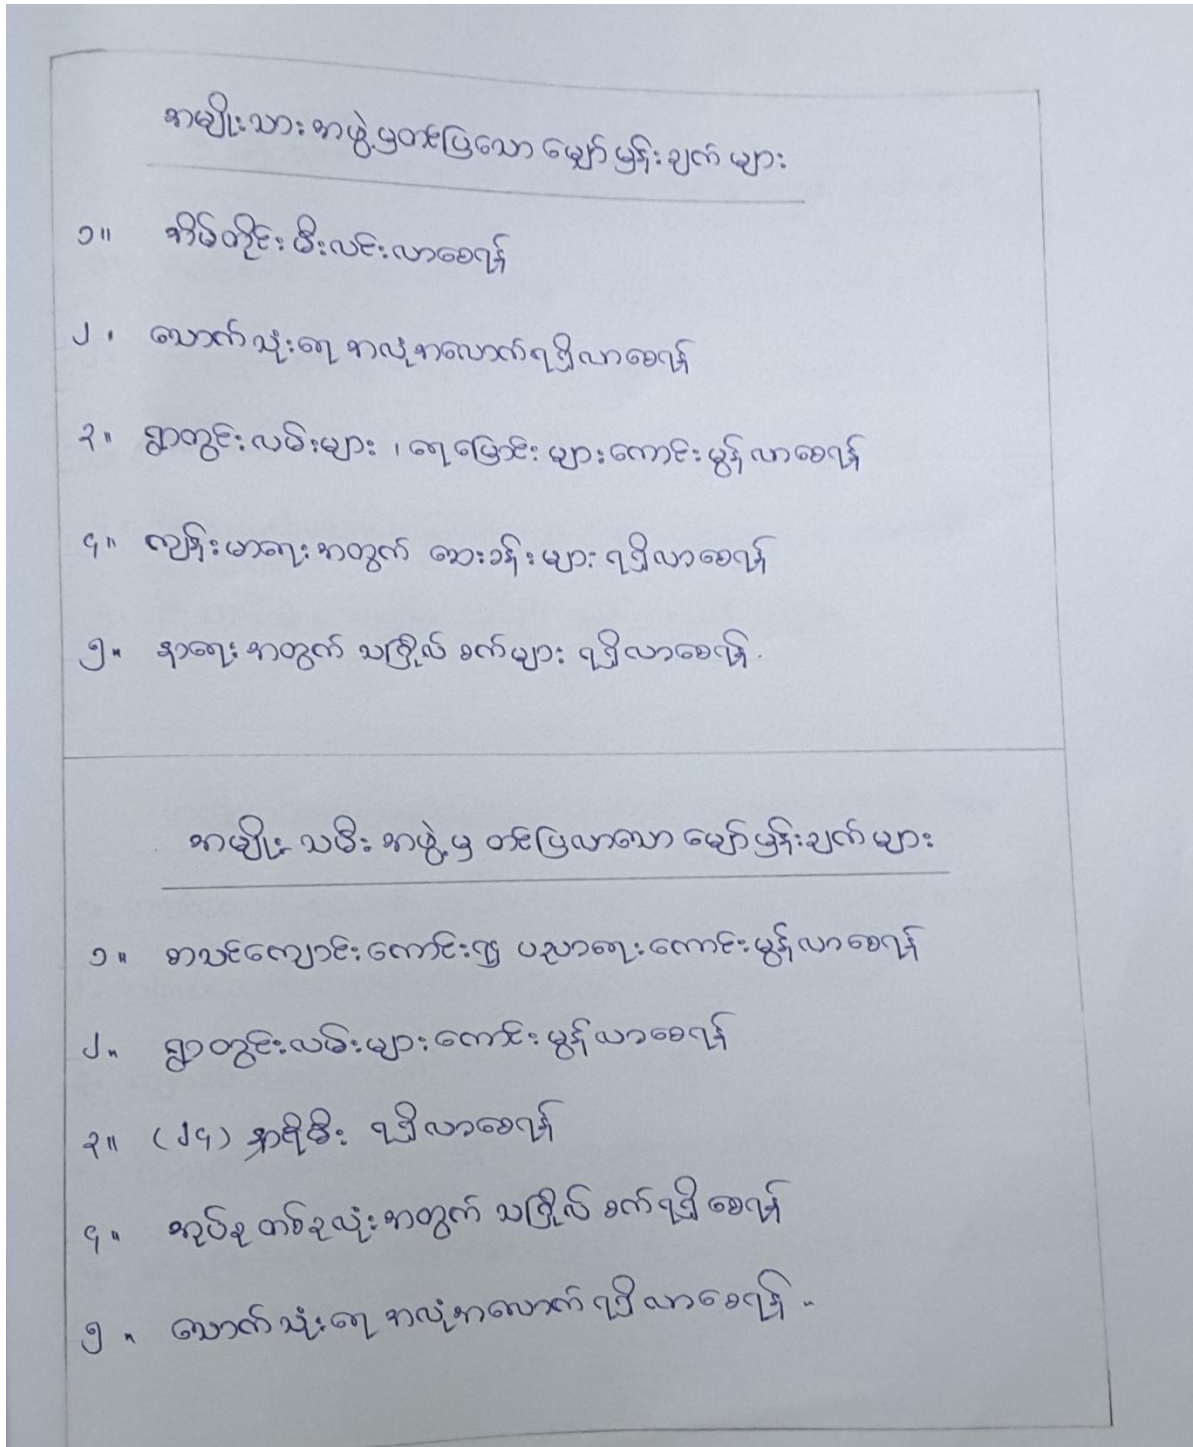 အမျိုးသားအဖွဲ့မှတင်ပြသော မျှော်မှန်းချက်များ
၁။ အိမ်တိုင်းမီးလင်းလာစေရန်
၂။ သောက်သုံးရေ အလုံအလောက်ရရှိလာစေရန်
၃။ ရွာတွင်းလမ်းများ ၊ ရေမြောင်းများကောင်းမွန်လာစေရန်
၄။ ကျန်းမာရေးအတွက် ဆေးခန်းများ ရရှိလာစေရန်
၅။ နာရေးအတွက် သင်္ဂြိုလ်စက်များ ရရှိလာစေရန်.
အမျိုးသမီးအဖွဲ့မှ တင်ပြလာသော မျှော်မှန်းချက်များ
၁။ စာသင်ကျောင်းကောင်း၍ ပညာရေးကောင်းမွန်လာစေရန်
၂။ ရွာတွင်းလမ်းများကောင်းမွန်လာစေရန်
၃။ (၂၄) နာရီမီး ရရှိလာစေရန်
၄။ အုပ်စုတစ်ခုလုံးအတွက် သင်္ဂြိုလ်စက်ရရှိစေရန်
၅။ သောက်သုံးရေ အလုံအလောက် ရရှိလာစေရန် ။